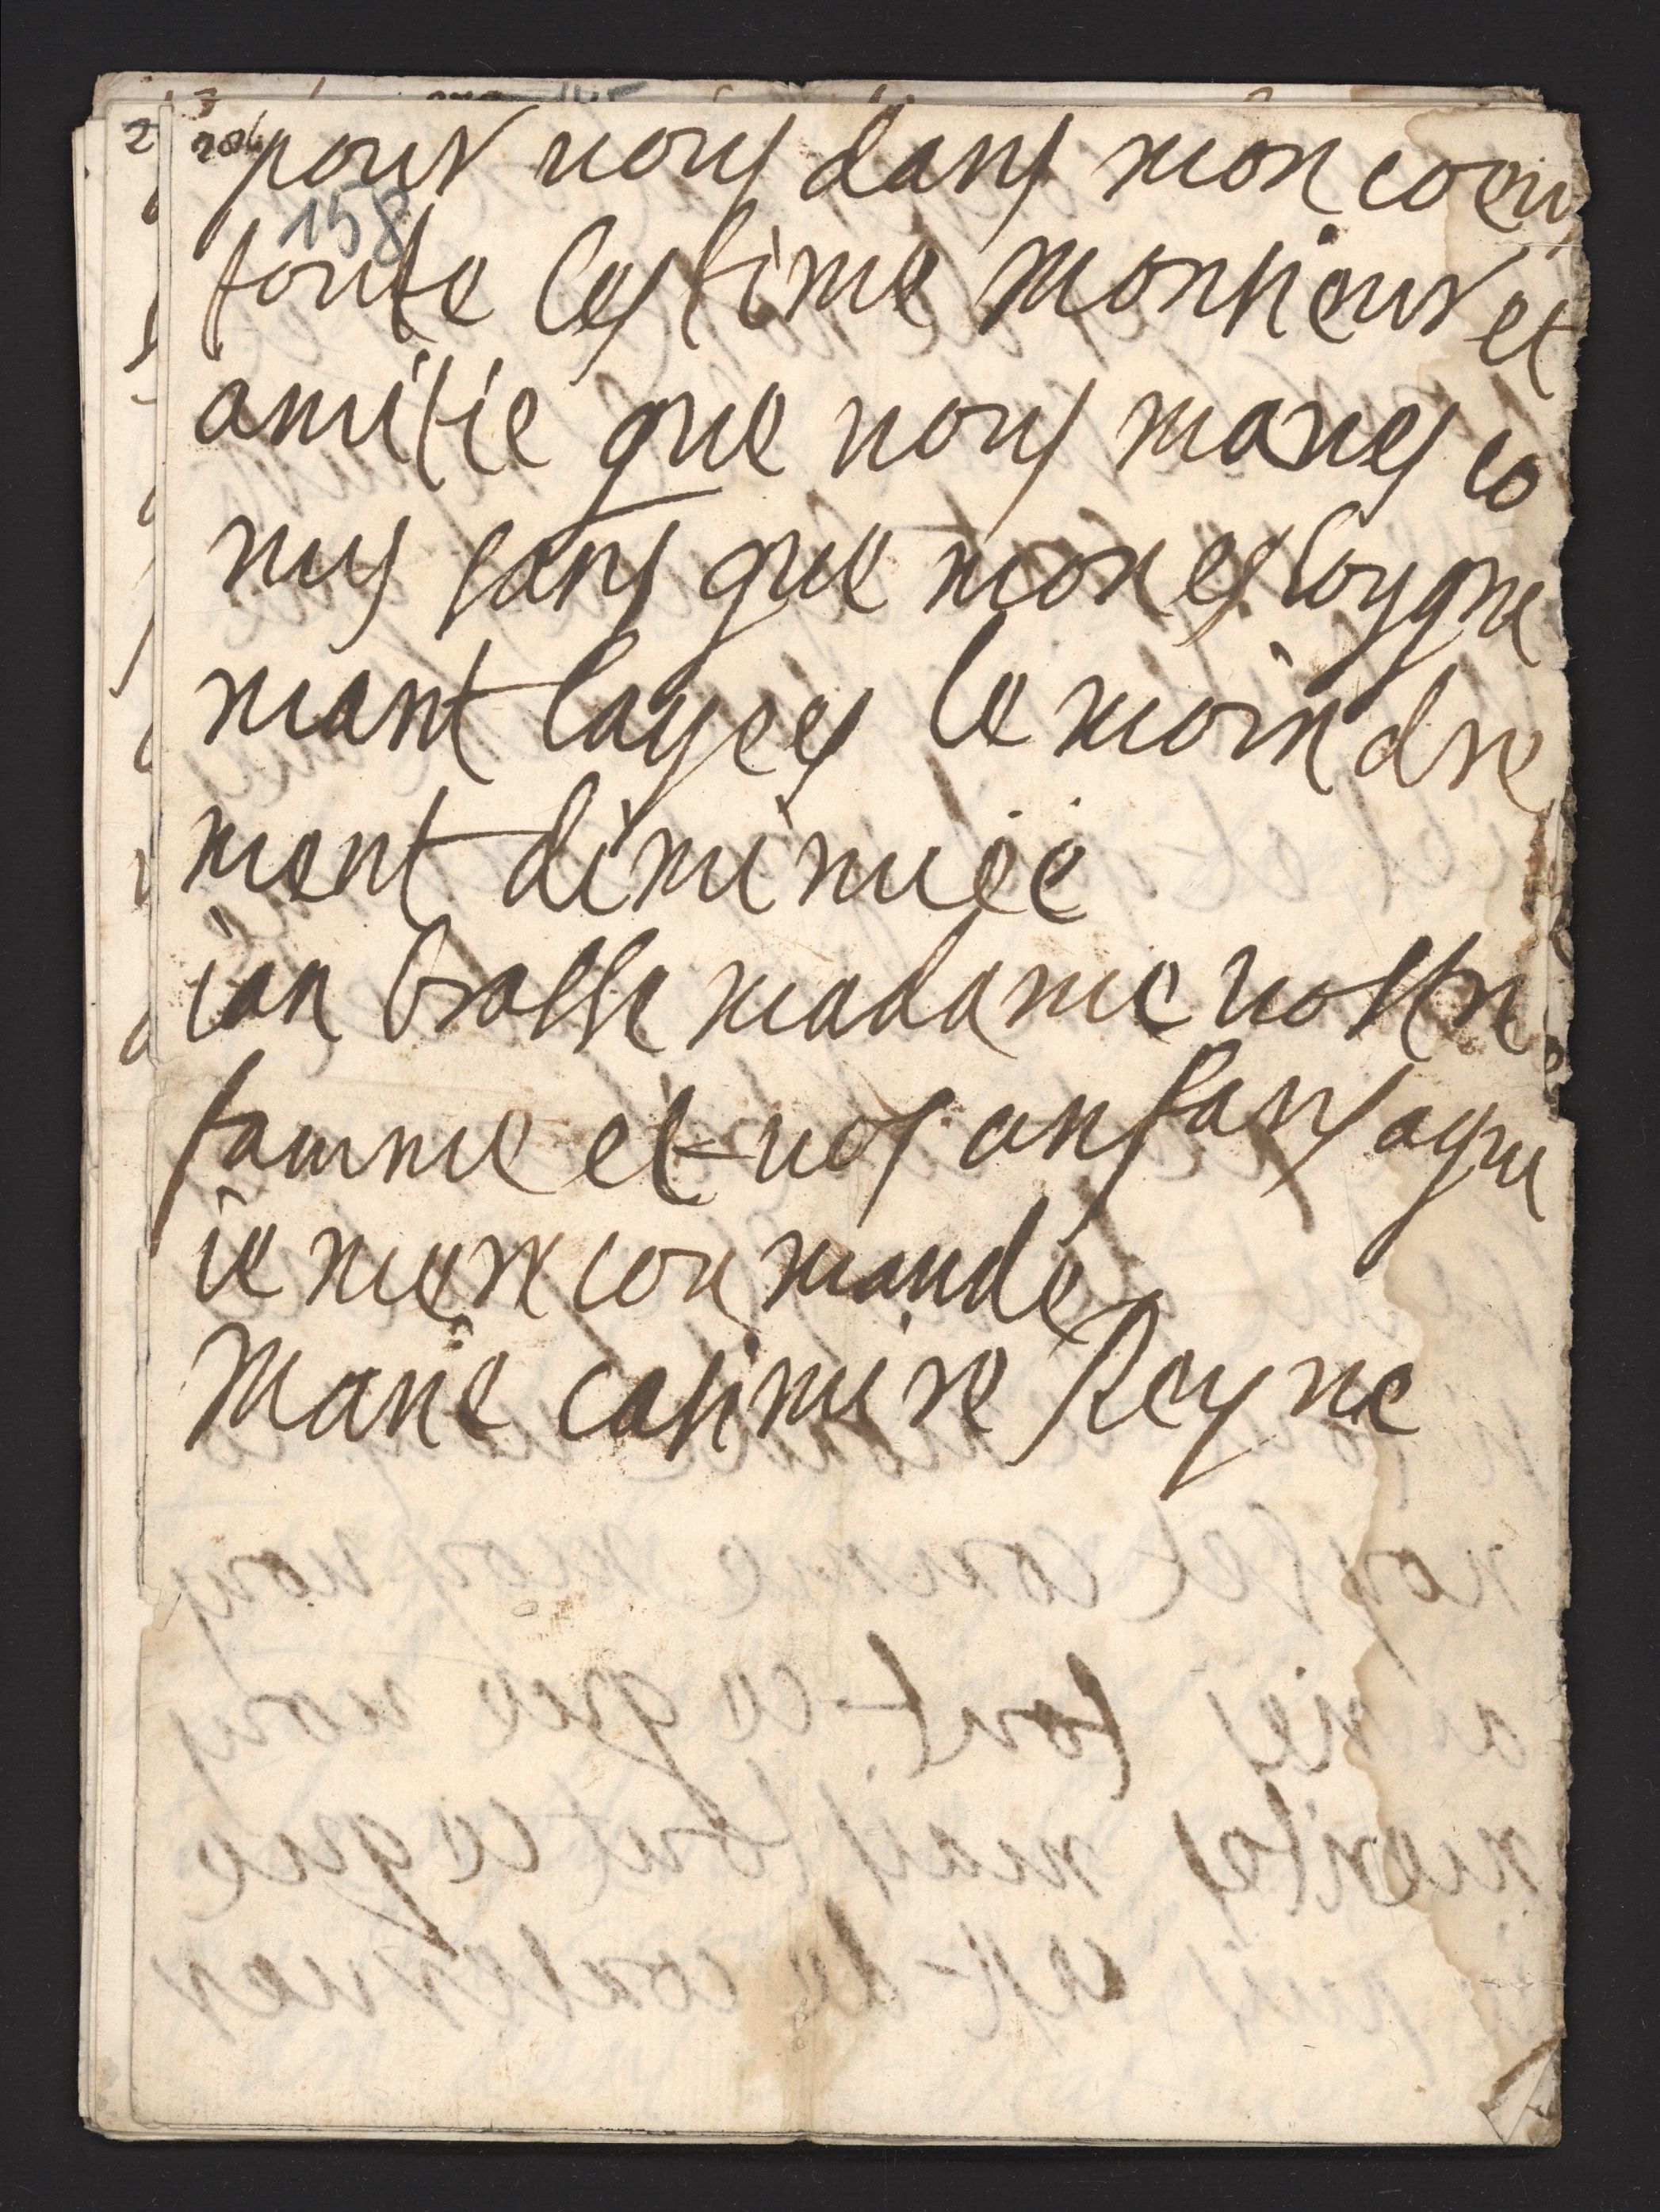 204
158
pour vous dans mon coeur
toute lestime monsieur et
amitie que vous maves co
nus sans que mon esloygne
mant layees le moindre
ment diminuée
ian brasse madame vostre
famme et vos anfans aqui
ie me recommande
Marie casimire Reyne